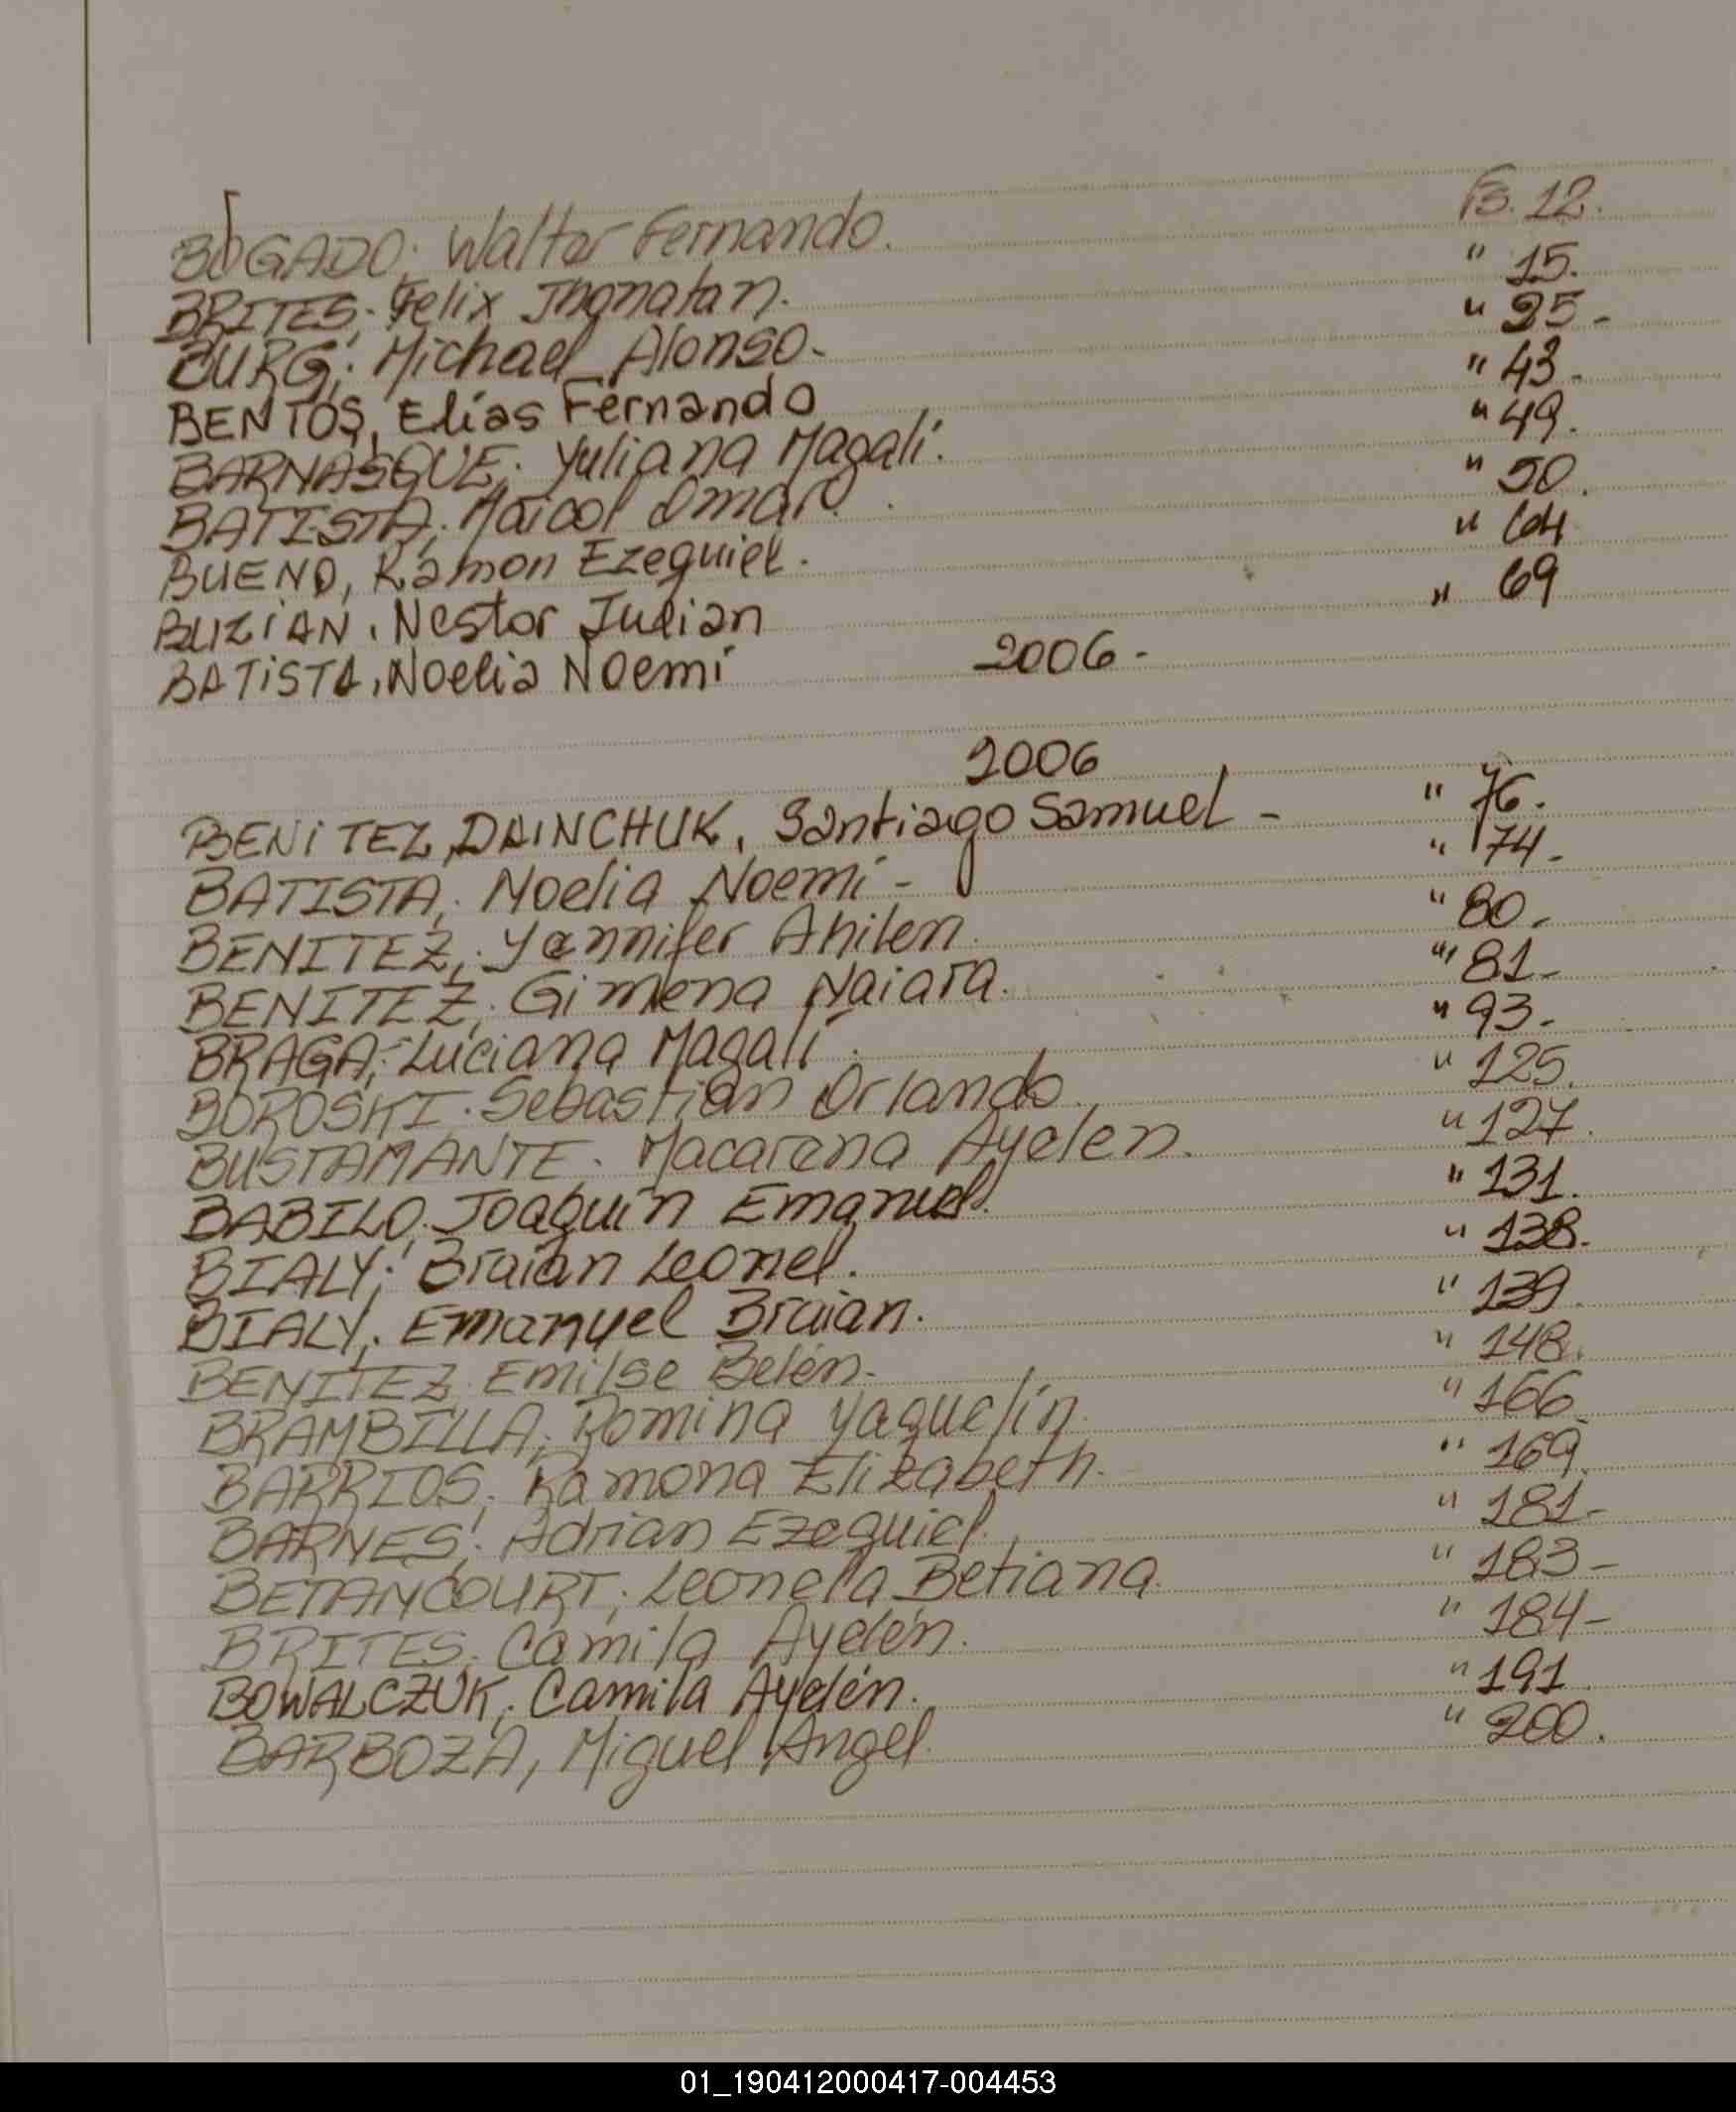 BOGADO, Walter Fernando. Fs. 12.
BRITES, Felix Jhonatan. " 15.
BURG, Michael Alonso- " 25-
BENTOS, Elías Fernando " 43-
BARNASQUE, Yuliana Magalí. " 49.
BATISTA, Maicol Omar. " 50.
BUENO, Ramon Ezequiel. " 64
BUZIAN, Nestor Julian " 69
BATISTA, Noelia Noemí 2006-
2006
BENITEZ DAINCHUK, Santiago Samuel - " 76.
BATISTA, Noelia Noemí- " 74-
BENITEZ, Yennifer Ahilen. " 80.
BENITEZ, Gimena Naiara. " 81-
BRAGA, Luciana Magalí. " 93-
BOROSKI, Sebastián Orlando. " 125.
BUSTAMANTE, Macarena Ayelen. " 127.
BABILO, Joaquín Emanuel. " 131.
BIALY, Braian Leonel. " 138.
BIALY, Emanuel Braian. " 139.
BENITEZ, Emilse Belén- " 148.
BRAMBILLA, Romina Yaquelín. " 166.
BARRIOS, Ramona Elizabeth. " 169.
BARNES, Adrian Ezequiel. " 181-
BETANCOURT, Leonela Betiana. " 183-
BRITES, Camila Ayelén. " 184-
BOWALCZUK, Camila Ayelén. " 191.
BARBOZA, Miguel Angel. " 200.
01_190412000417-004453